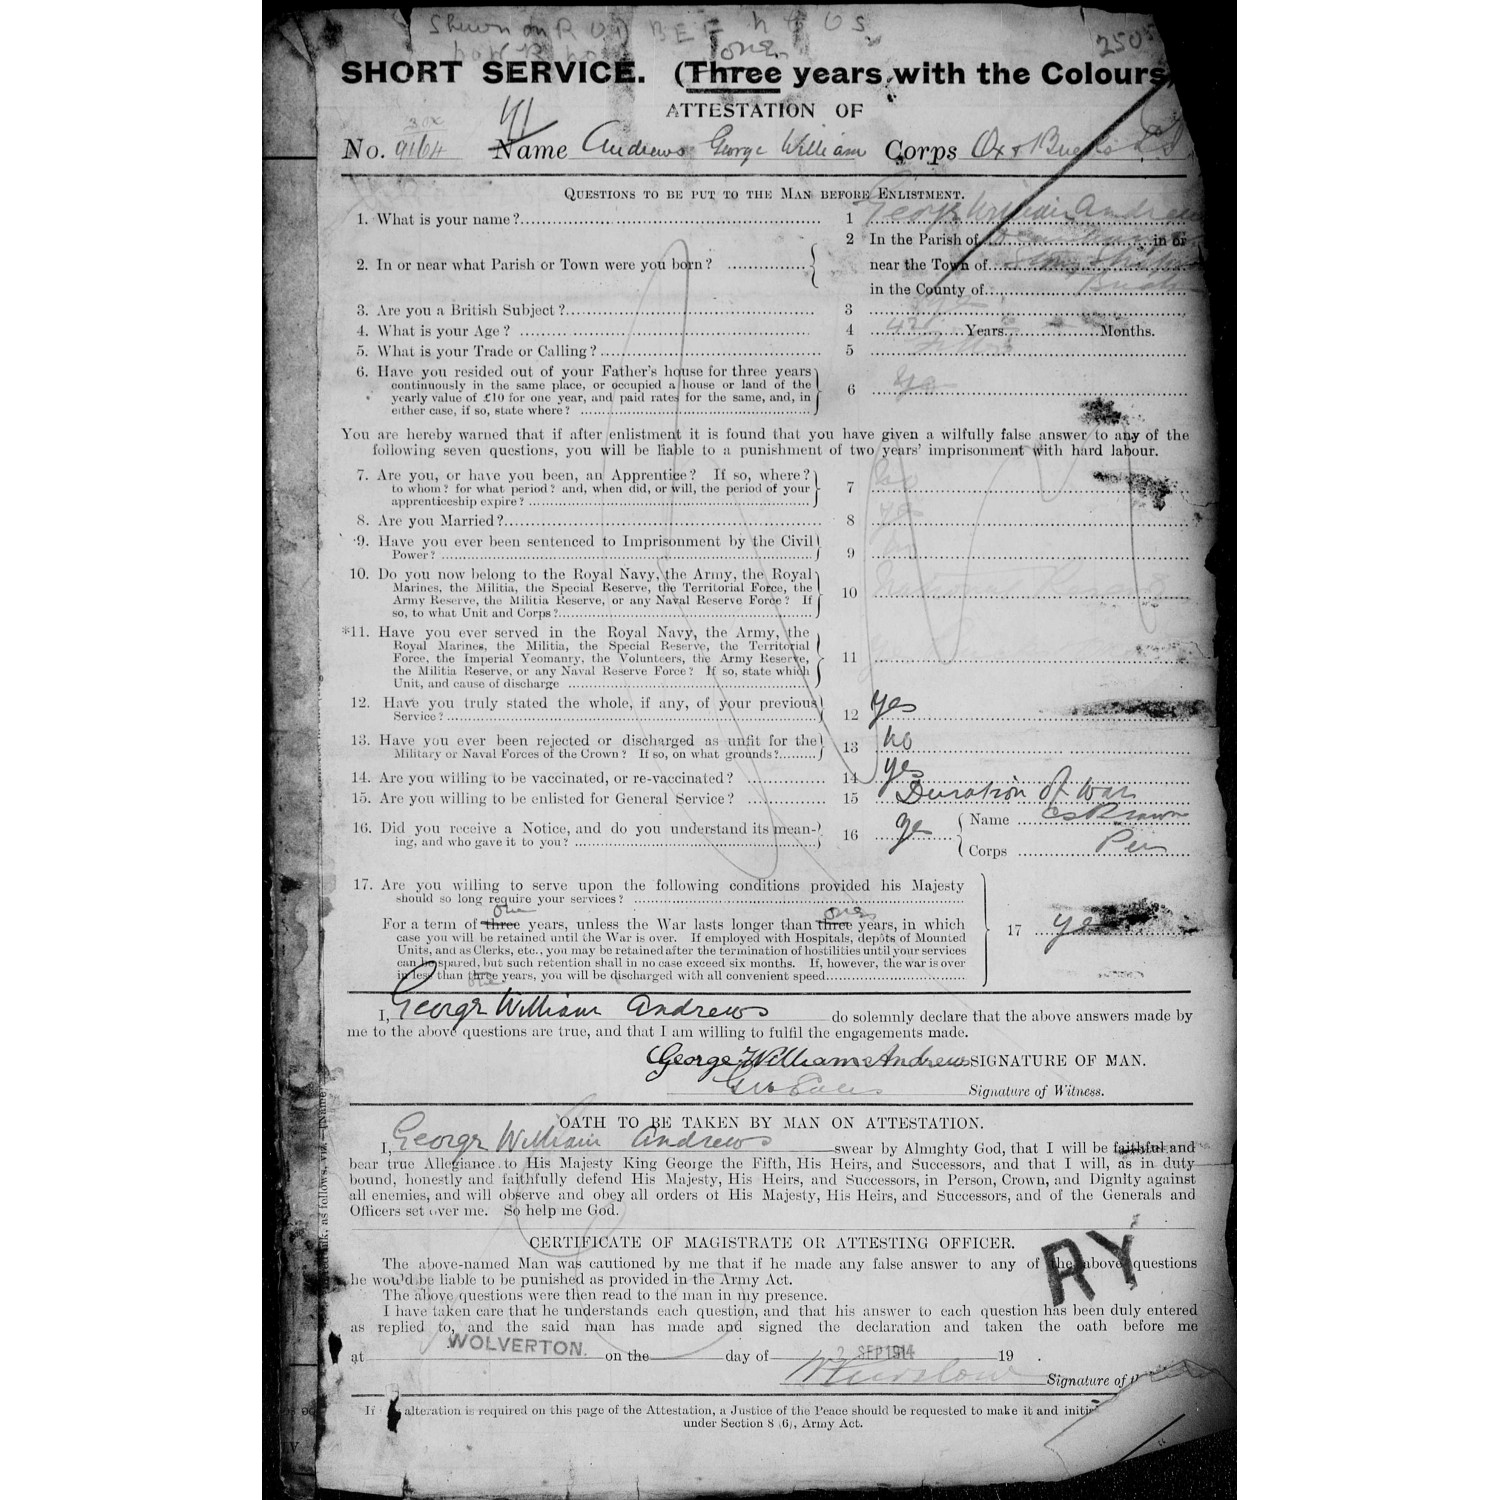 Shewn on R
B E F
one
2505
SHORT SERVICE. (Three years with the Colours
ATTESTATION OF
No. 9164 Name Andrews George William Corps Ox & Bucks L I
QUESTIONS TO BE PUT TO THE MAN BEFORE ENLISTMENT.
1. What is your name? 1 George William Andrews
2. In or near what Parish or Town were you born? 2 In the Parish of in or
near the Town of
in the County of Bucks
3. Are you a British Subject? 3
4. What is your Age? 4 42 Years Months.
5. What is your Trade or Calling? 5
6. Have you resided out of your Father's house for three years
continuously in the same place, or occupied a house or land of the
yearly value of £10 for one year, and paid rates for the same, and, in
either case, if so, state where? 6 Yes
You are hereby warned that if after enlistment it is found that you have given a wilfully false answer to any of the
following seven questions, you will be liable to a punishment of two years' imprisonment with hard labour.
7. Are you, or have you been, an Apprentice? If so, where?
to whom? for what period? and, when did, or will, the period of your
apprenticeship expire? 7 no
8. Are you Married? 8 yes
9. Have you ever been sentenced to Imprisonment by the Civil
Power? 9 no
10. Do you now belong to the Royal Navy, the Army, the Royal
Marines, the Militia, the Special Reserve, the Territorial Force, the
Army Reserve, the Militia Reserve, or any Naval Reserve Force? If
so, to what Unit and Corps? 10 National Reserve
*11. Have you ever served in the Royal Navy, the Army, the
Royal Marines, the Militia, the Special Reserve, the Territorial
Force, the Imperial Yeomanry, the Volunteers, the Army Reserve,
the Militia Reserve, or any Naval Reserve Force? If so, state which
Unit, and cause of discharge 11
12. Have you truly stated the whole, if any, of your previous
Service? 12 yes
13. Have you ever been rejected or discharged as unfit for the
Military or Naval Forces of the Crown? If so, on what grounds? 13 no
14. Are you willing to be vaccinated, or re-vaccinated? 14 yes
15. Are you willing to be enlisted for General Service? 15 Duration of War
16. Did you receive a Notice, and do you understand its mean-
ing, and who gave it to you? 16 yes Name
Corps
17. Are you willing to serve upon the following conditions provided his Majesty
should so long require your services?
one one
For a term of three years, unless the War lasts longer than three years, in which
case you will be retained until the War is over. If employed with Hospitals, depôts of Mounted
Units, and as Clerks, etc., you may be retained after the termination of hostilities until your services
can be spared, but such retention shall in no case exceed six months. If, however, the war is over
in less than three years, you will be discharged with all convenient speed
one
17 yes
I, George William Andrews do solemnly declare that the above answers made by
me to the above questions are true, and that I am willing to fulfil the engagements made.
George William Andrews SIGNATURE OF MAN.
Signature of Witness.
OATH TO BE TAKEN BY MAN ON ATTESTATION.
I, George William Andrews swear by Almighty God, that I will be faithful and
bear true Allegiance to His Majesty King George the Fifth, His Heirs, and Successors, and that I will, as in duty
bound, honestly and faithfully defend His Majesty, His Heirs, and Successors, in Person, Crown, and Dignity against
all enemies, and will observe and obey all orders of His Majesty, His Heirs, and Successors, and of the Generals and
Officers set over me. So help me God.
CERTIFICATE OF MAGISTRATE OR ATTESTING OFFICER.
The above-named Man was cautioned by me that if he made any false answer to any of the above questions
he would be liable to be punished as provided in the Army Act.
The above questions were then read to the man in my presence.
I have taken care that he understands each question, and that his answer to each question has been duly entered
as replied to, and the said man has made and signed the declaration and taken the oath before me
at WOLVERTON. on the day of 2 SEP 1914 19 .
Signature of
RY
If alteration is required on this page of the Attestation, a Justice of the Peace should be requested to make it and initi
under Section 8 (6), Army Act.